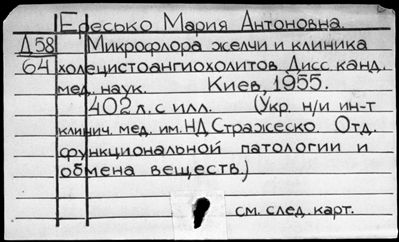 Ересько Мария Антоновна.
Д58 Микрофлора желчи и клиника
64 холецистоангиохолитов Дисс. канд.
мед. наук. Киев, 1955.
402 л. с илл. (Укр. н/и ин-т
клинич. мед. им. НД Стражеско. Отд.
функциональной патологии и
обмена веществ.)
см. след. карт.